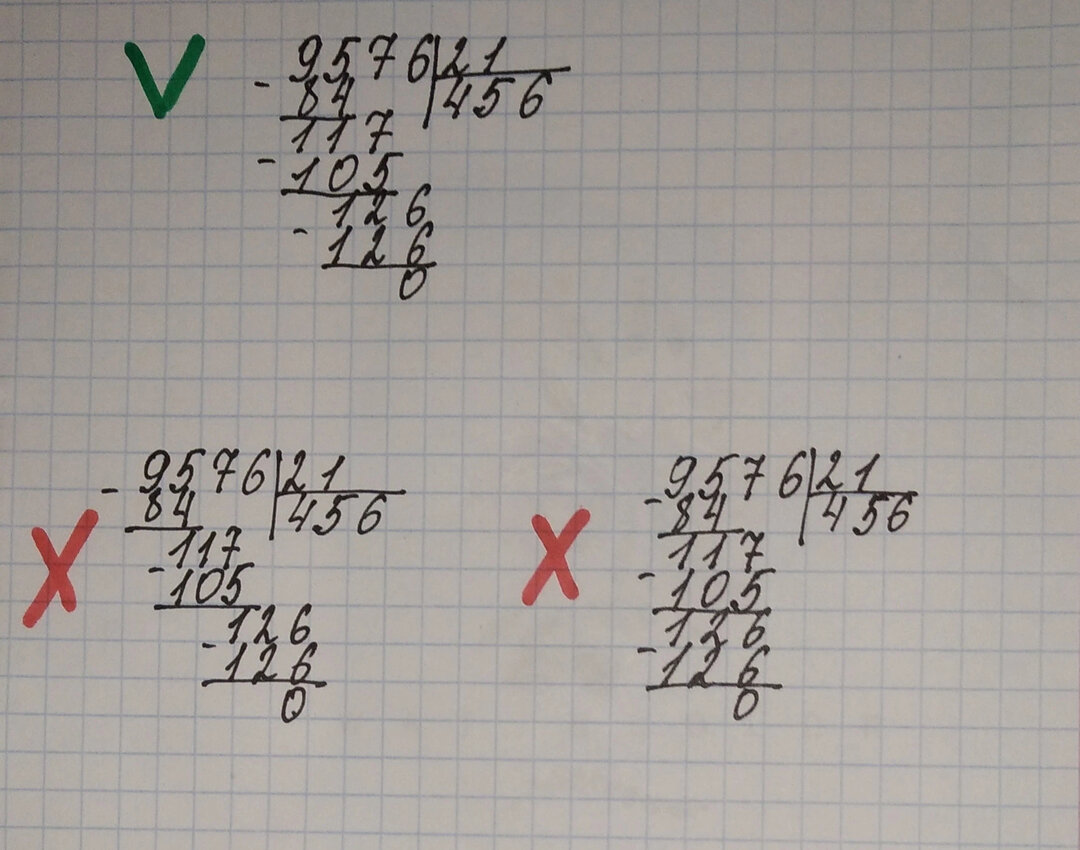 9576|21
- 84 |456
117
- 105
126
- 126
0
9576|21
- 84 |456
117
- 105
126
- 126
0
9576|21
- 84 |456
117
- 105
126
- 126
0